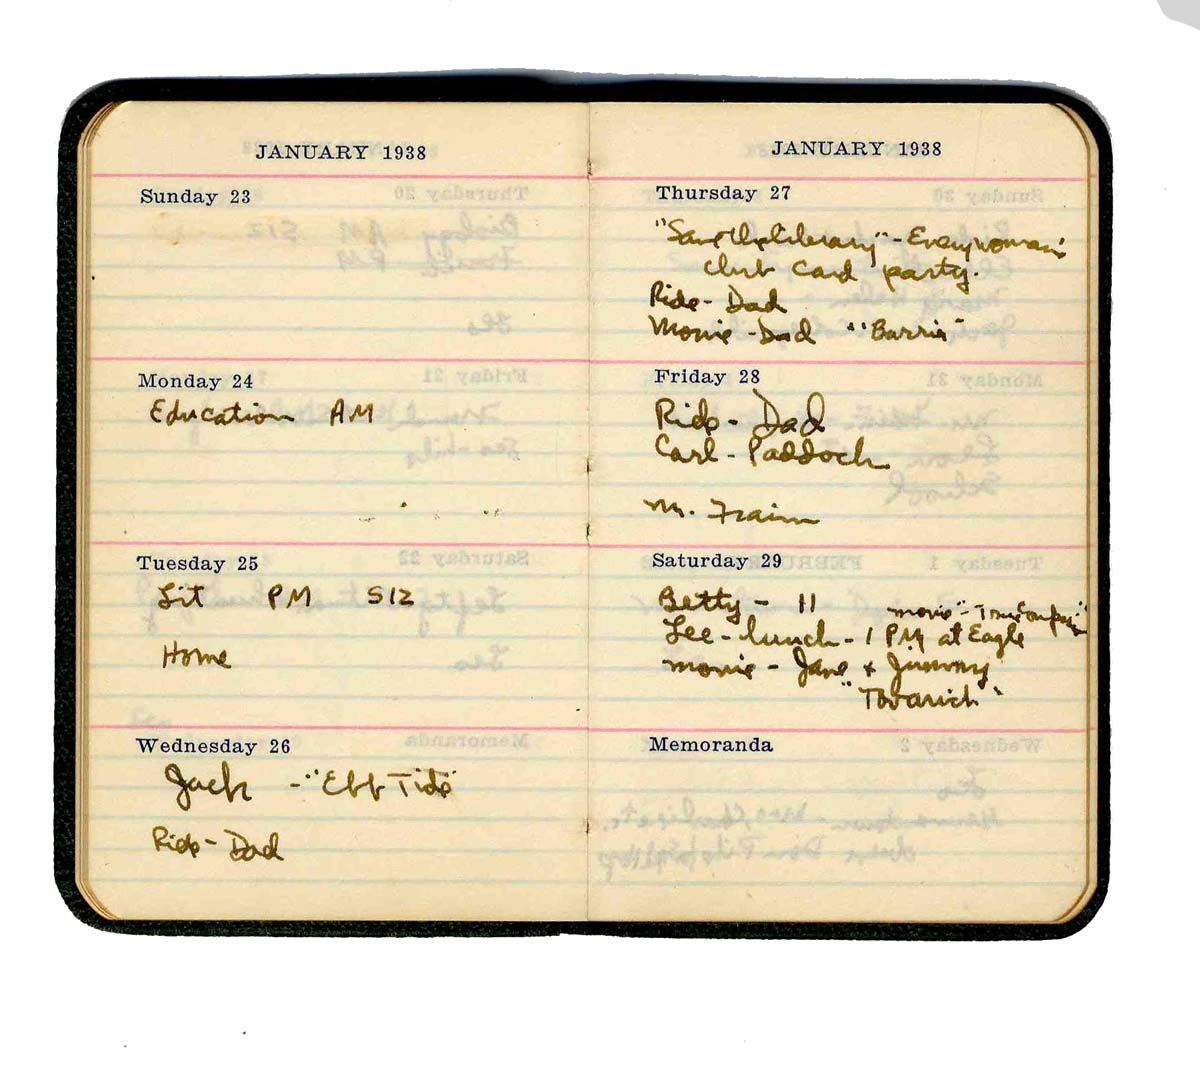 JANUARY 1938
Sunday 23
Monday 24
Education AM
Tuesday 25
Lit PM S12
Home
Wednesday 26
Jack - "Ebb Tide"
Ride - Dad
JANUARY 1938
Thursday 27
"Save the Library" - Everywoman's
club card party.
Ride - Dad
Movie - Dad "Barrier"
Friday 28
Ride - Dad
Carl - Paddock
M. Fraim
Saturday 29
Betty - 11 movie - "True Confession"
Lee - lunch - 1 PM at Eagle
movie - Jane + Jimmy
"Tovarich"
Memoranda